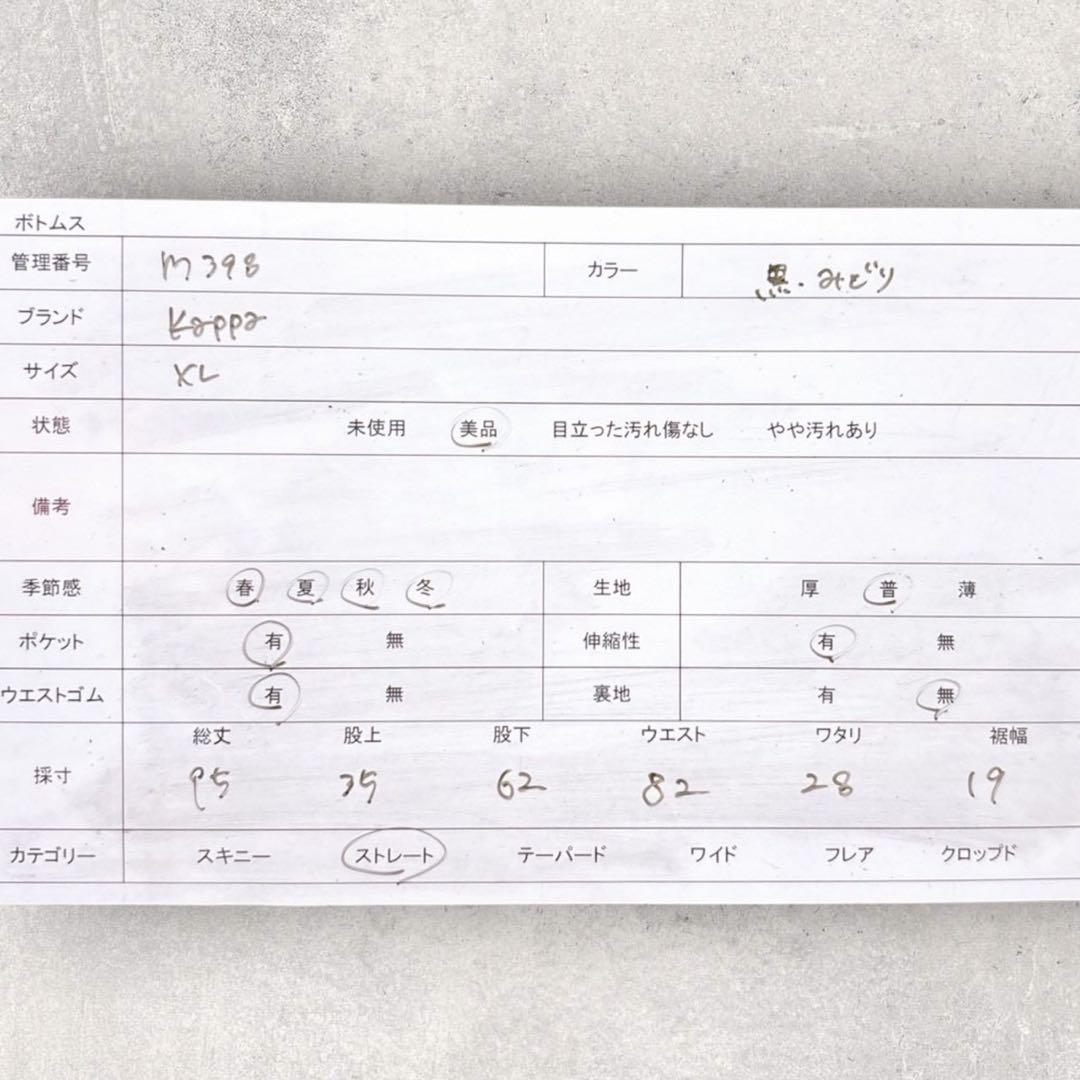 ボトムス
管理番号 M398 カラー 黒・みどり
ブランド Kappa
サイズ XL
状態 未使用 美品 目立った汚れ傷なし やや汚れあり
備考
季節感 春 夏 秋 冬 生地 厚 普 薄
ポケット 有 無 伸縮性 有 無
ウエストゴム 有 無 裏地 有 無
総丈 股上 股下 ウエスト ワタリ 裾幅
採寸 95 35 62 82 28 19
カテゴリー スキニー ストレート テーパード ワイド フレア クロップド